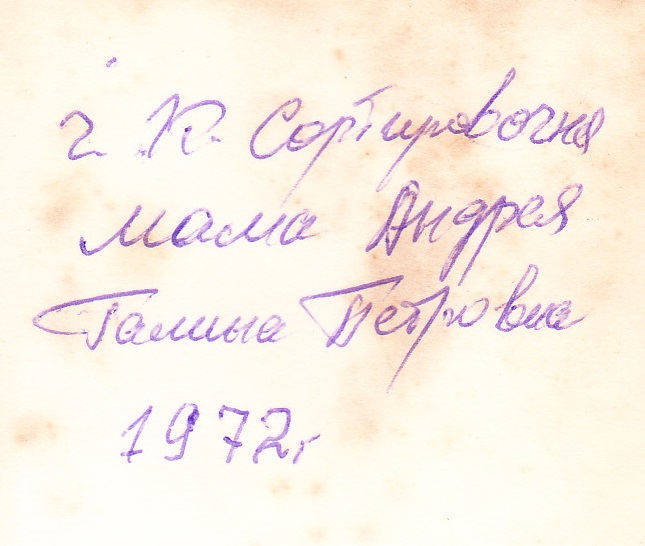 г. К. Сортировочня
мама Андрея
Галина Петровна
1972г